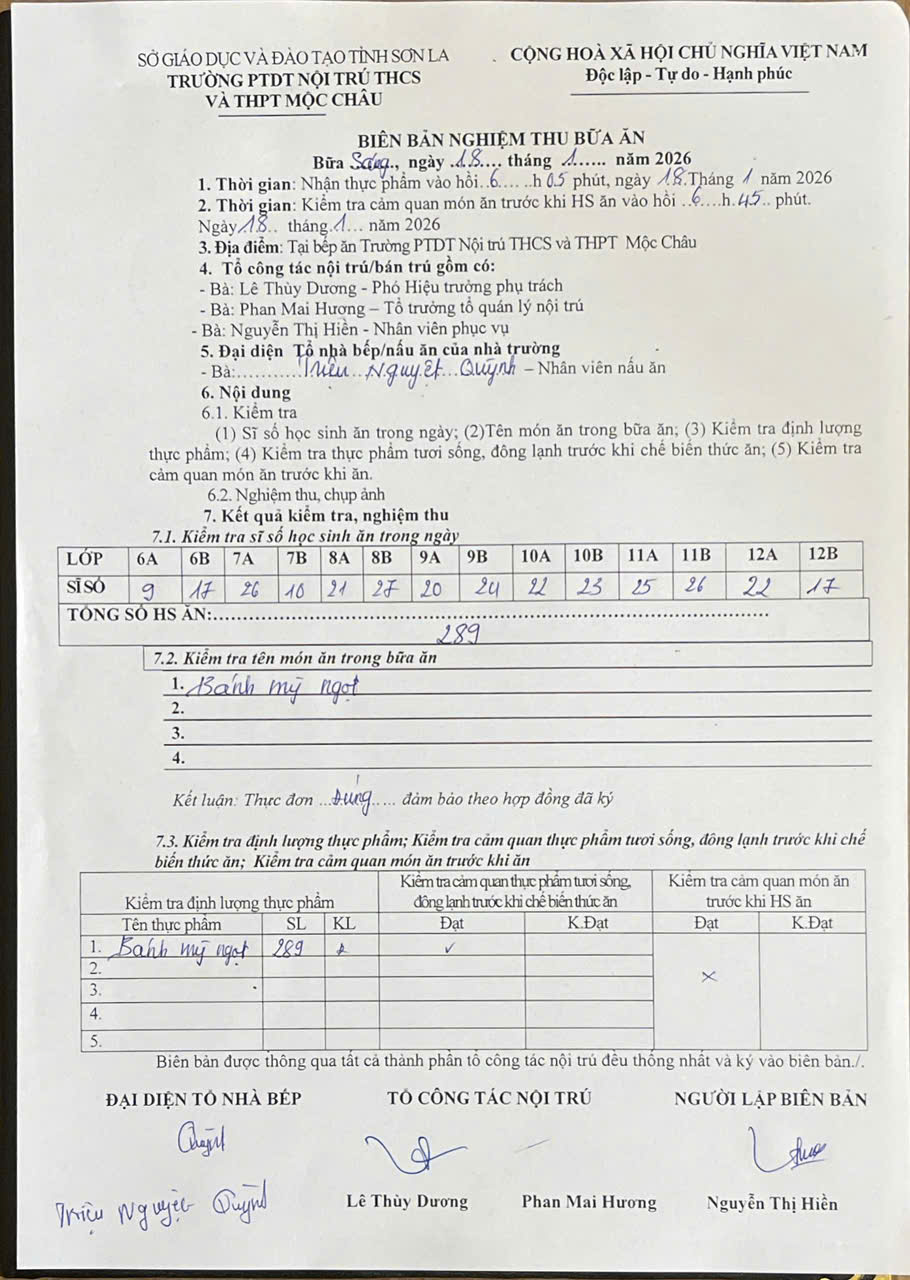 SỞ GIÁO DỤC VÀ ĐÀO TẠO TỈNH SƠN LA
TRƯỜNG PTDT NỘI TRÚ THCS
VÀ THPT MỘC CHÂU
CỘNG HOÀ XÃ HỘI CHỦ NGHĨA VIỆT NAM
Độc lập - Tự do - Hạnh phúc
BIÊN BẢN NGHIỆM THU BỮA ĂN
Bữa Sáng., ngày .18.... tháng .1...... năm 2026
1. Thời gian: Nhận thực phẩm vào hồi..6..... ..h 05 phút, ngày 18.Tháng 1 năm 2026
2. Thời gian: Kiểm tra cảm quan món ăn trước khi HS ăn vào hồi ..6....h.45.. phút.
Ngày 18.. tháng.1... năm 2026
3. Địa điểm: Tại bếp ăn Trường PTDT Nội trú THCS và THPT Mộc Châu
4. Tổ công tác nội trú/bán trú gồm có:
- Bà: Lê Thùy Dương - Phó Hiệu trưởng phụ trách
- Bà: Phan Mai Hương – Tổ trưởng tổ quản lý nội trú
- Bà: Nguyễn Thị Hiền - Nhân viên phục vụ
5. Đại diện Tổ nhà bếp/nấu ăn của nhà trường
- Bà:..........Triệu...Nguyệt...Quỳnh – Nhân viên nấu ăn
6. Nội dung
6.1. Kiểm tra
(1) Sĩ số học sinh ăn trong ngày; (2)Tên món ăn trong bữa ăn; (3) Kiểm tra định lượng
thực phẩm; (4) Kiểm tra thực phẩm tươi sống, đông lạnh trước khi chế biến thức ăn; (5) Kiểm tra
cảm quan món ăn trước khi ăn.
6.2. Nghiệm thu, chụp ảnh
7. Kết quả kiểm tra, nghiệm thu
7.1. Kiểm tra sĩ số học sinh ăn trong ngày
LỚP 6A 6B 7A 7B 8A 8B 9A 9B 10A 10B 11A 11B 12A 12B
SĨ SỐ 9 17 26 10 21 27 20 24 22 23 25 26 22 17
TỔNG SỐ HS ĂN:....................................................................................
289
7.2. Kiểm tra tên món ăn trong bữa ăn
1. Bánh mỳ ngọt
2.
3.
4.
Kết luận: Thực đơn ...Đúng..... đảm bảo theo hợp đồng đã ký
7.3. Kiểm tra định lượng thực phẩm; Kiểm tra cảm quan thực phẩm tươi sống, đông lạnh trước khi chế
biến thức ăn; Kiểm tra cảm quan món ăn trước khi ăn
Kiểm tra định lượng thực phẩm
Kiểm tra cảm quan thực phẩm tươi sống,
đông lạnh trước khi chế biến thức ăn
Kiểm tra cảm quan món ăn
trước khi HS ăn
Tên thực phẩm SL KL Đạt K.Đạt Đạt K.Đạt
1. Bánh mỳ ngọt 289 ✓
2. ×
3.
4.
5.
Biên bản được thông qua tất cả thành phần tổ công tác nội trú đều thống nhất và ký vào biên bản./.
ĐẠI DIỆN TỔ NHÀ BẾP TỔ CÔNG TÁC NỘI TRÚ NGƯỜI LẬP BIÊN BẢN
Quỳnh
Triệu Nguyệt Quỳnh
Lê Thùy Dương Phan Mai Hương Nguyễn Thị Hiền